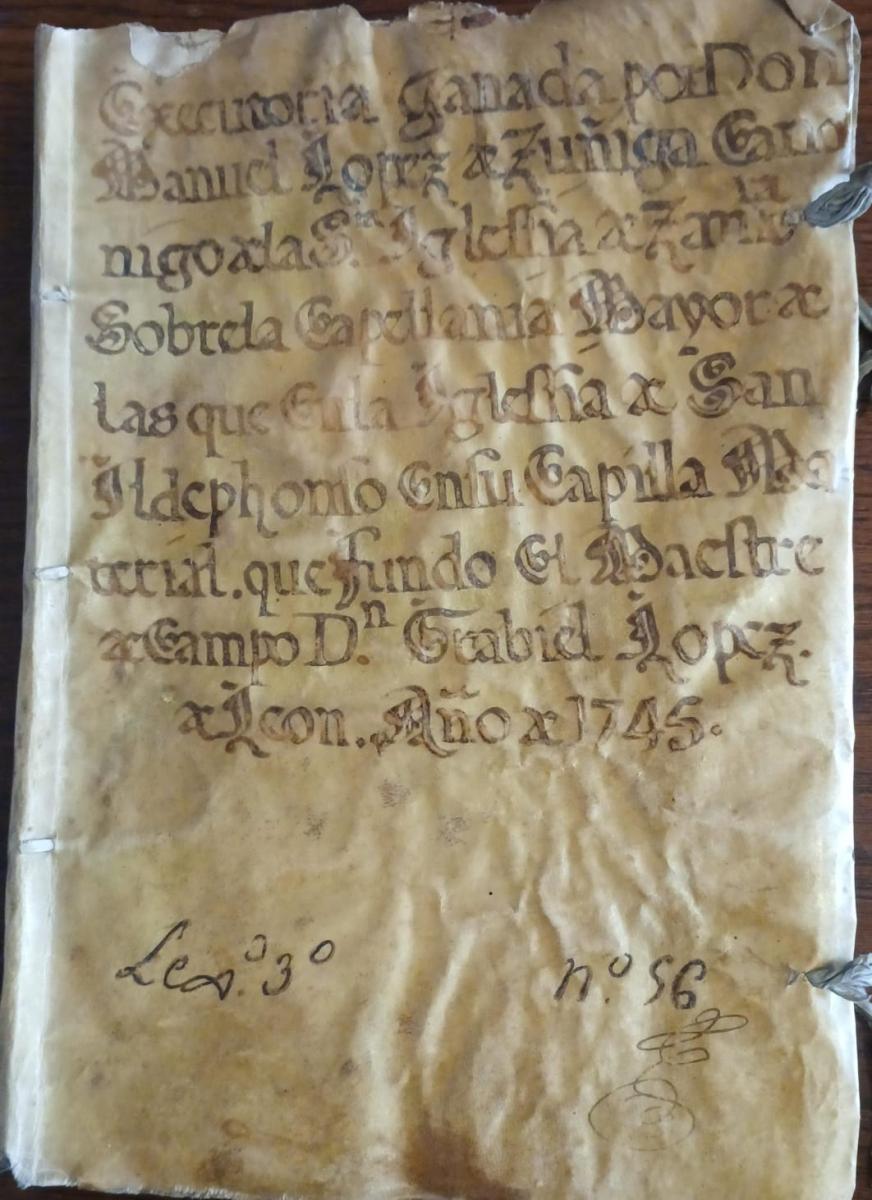 Executoria ganada por Don
Manuel Lopez de Zuñiga Cano
nigo de la S.ⁿ Iglessia de Zamᵒʳᵃ
Sobre la Capellania Mayor de
las que en la Iglessia de San
Ildephonso En su Capilla Ma
terial. que fundo El Maestre
de Campo D.ⁿ Grabiel Lopez.
de Leon. Año de 1745.
Leg.º 3º
nº. 56